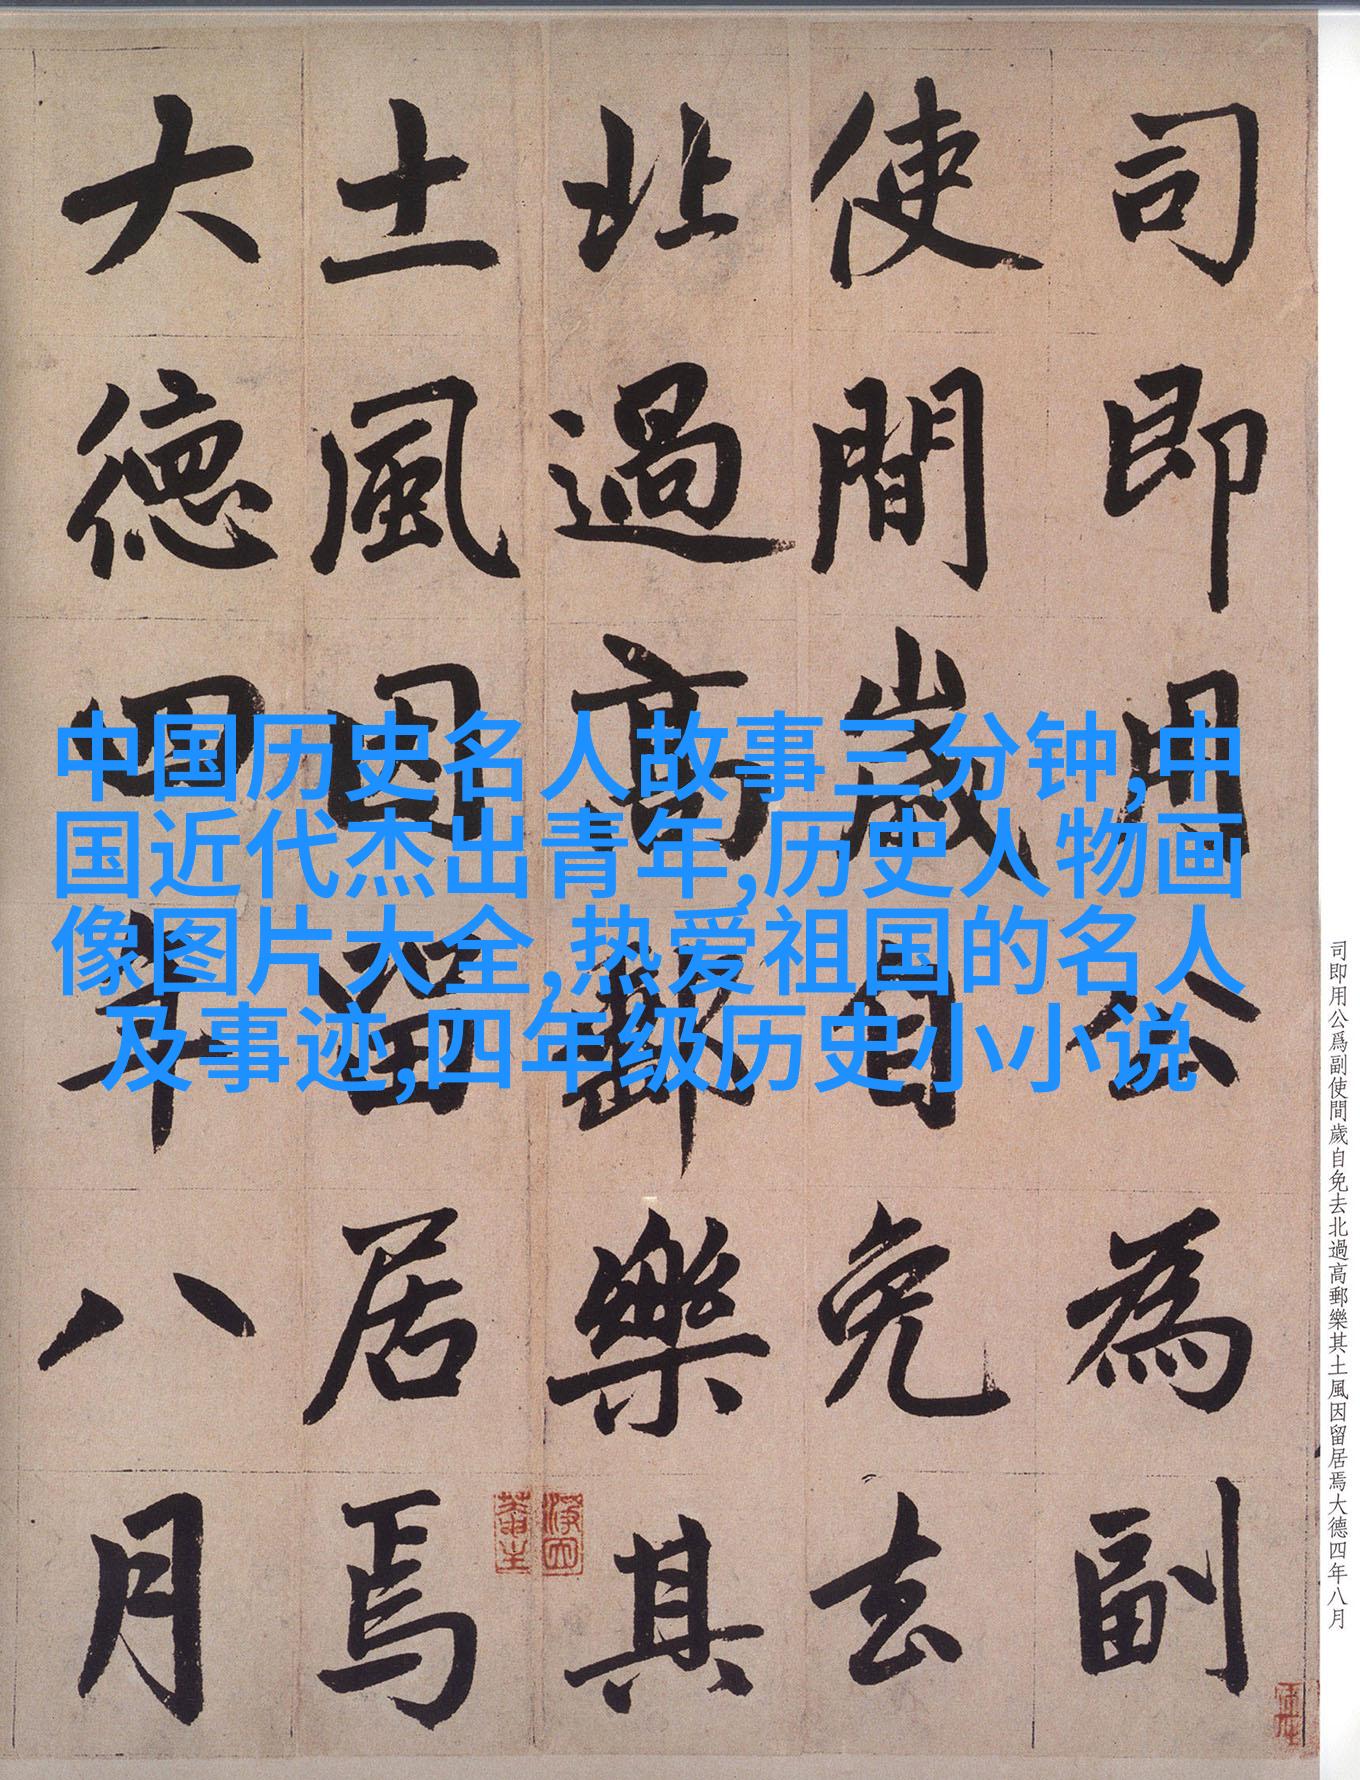 司即用公為副
使間歲自免去
北過高郵樂其
土風因留居焉
大德四年八月
中国历史名人故事三分钟,中
国近代杰出青年,历史人物画
像图片大全,热爱祖国的名人
及事迹,四年级历史小小说
司即用公爲副使間歲自免去北過高郵樂其土風因留居焉大德四年八月